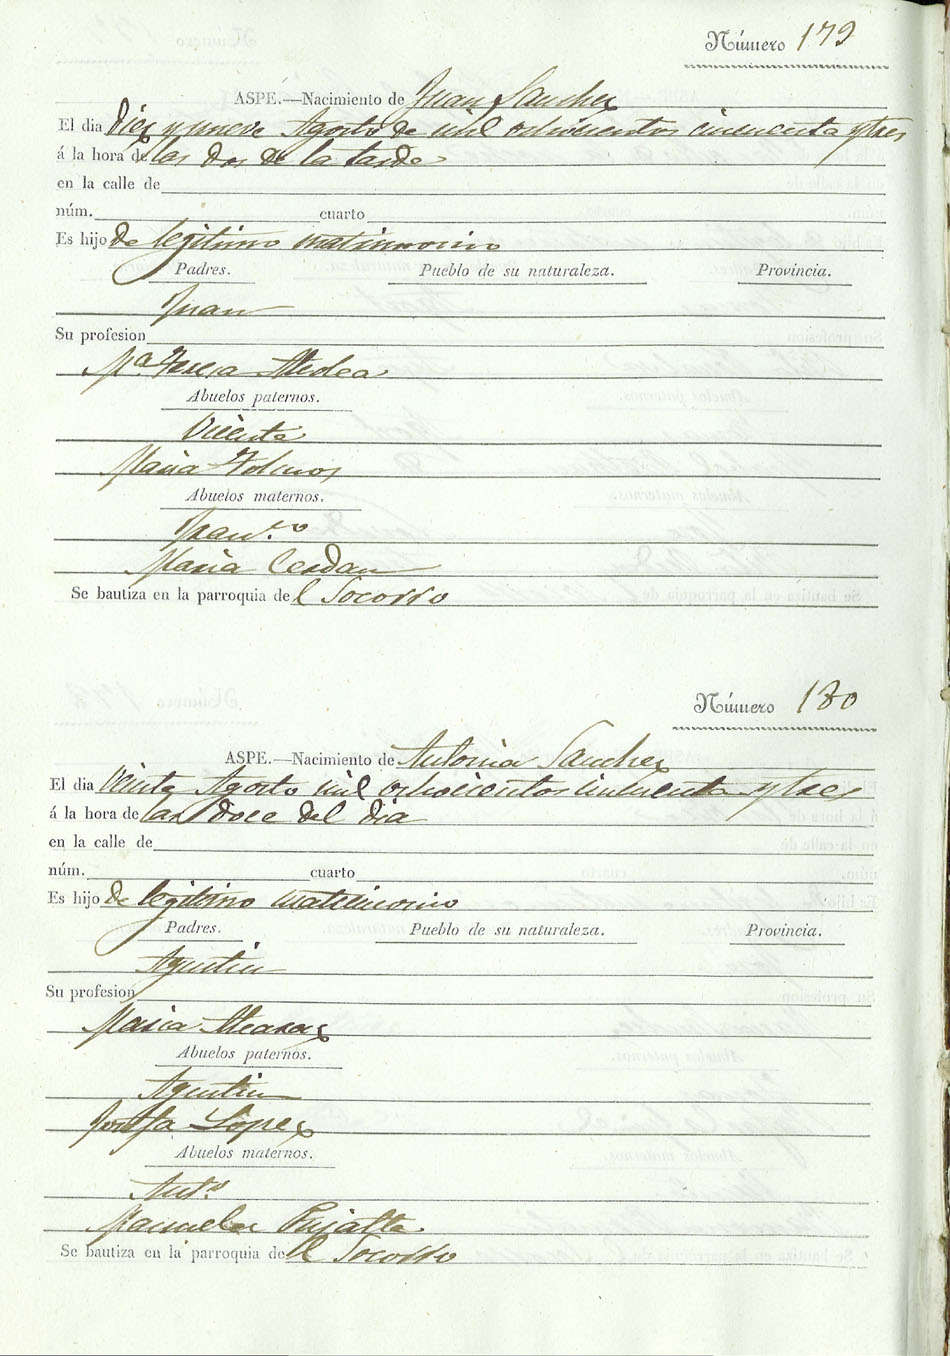 Número 179
ASPE.—Nacimiento de Juan Sanchez
El dia Diez y nueve Agosto de mil ochocientos cincuenta y tres
á la hora de las dos de la tarde
en la calle de
núm. cuarto
Es hijo de legitimo matrimonio
Padres. Pueblo de su naturaleza. Provincia.
Juan
Su profesion
Mª Teresa
Abuelos paternos.
Vicente
Maria
Abuelos maternos.
Franco
Maria Cerdan
Se bautiza en la parroquia del Socorro
Número 180
ASPE.—Nacimiento de Antonia Sanchez
El dia Veinte Agosto mil ochocientos cincuenta y tres
á la hora de las doce del dia
en la calle de
núm. cuarto
Es hijo de legitimo matrimonio
Padres. Pueblo de su naturaleza. Provincia.
Agustin
Su profesion
Maria
Abuelos paternos.
Agustin
Josefa Lopez
Abuelos maternos.
Antº
Manuela Pujalte
Se bautiza en la parroquia de El Socorro